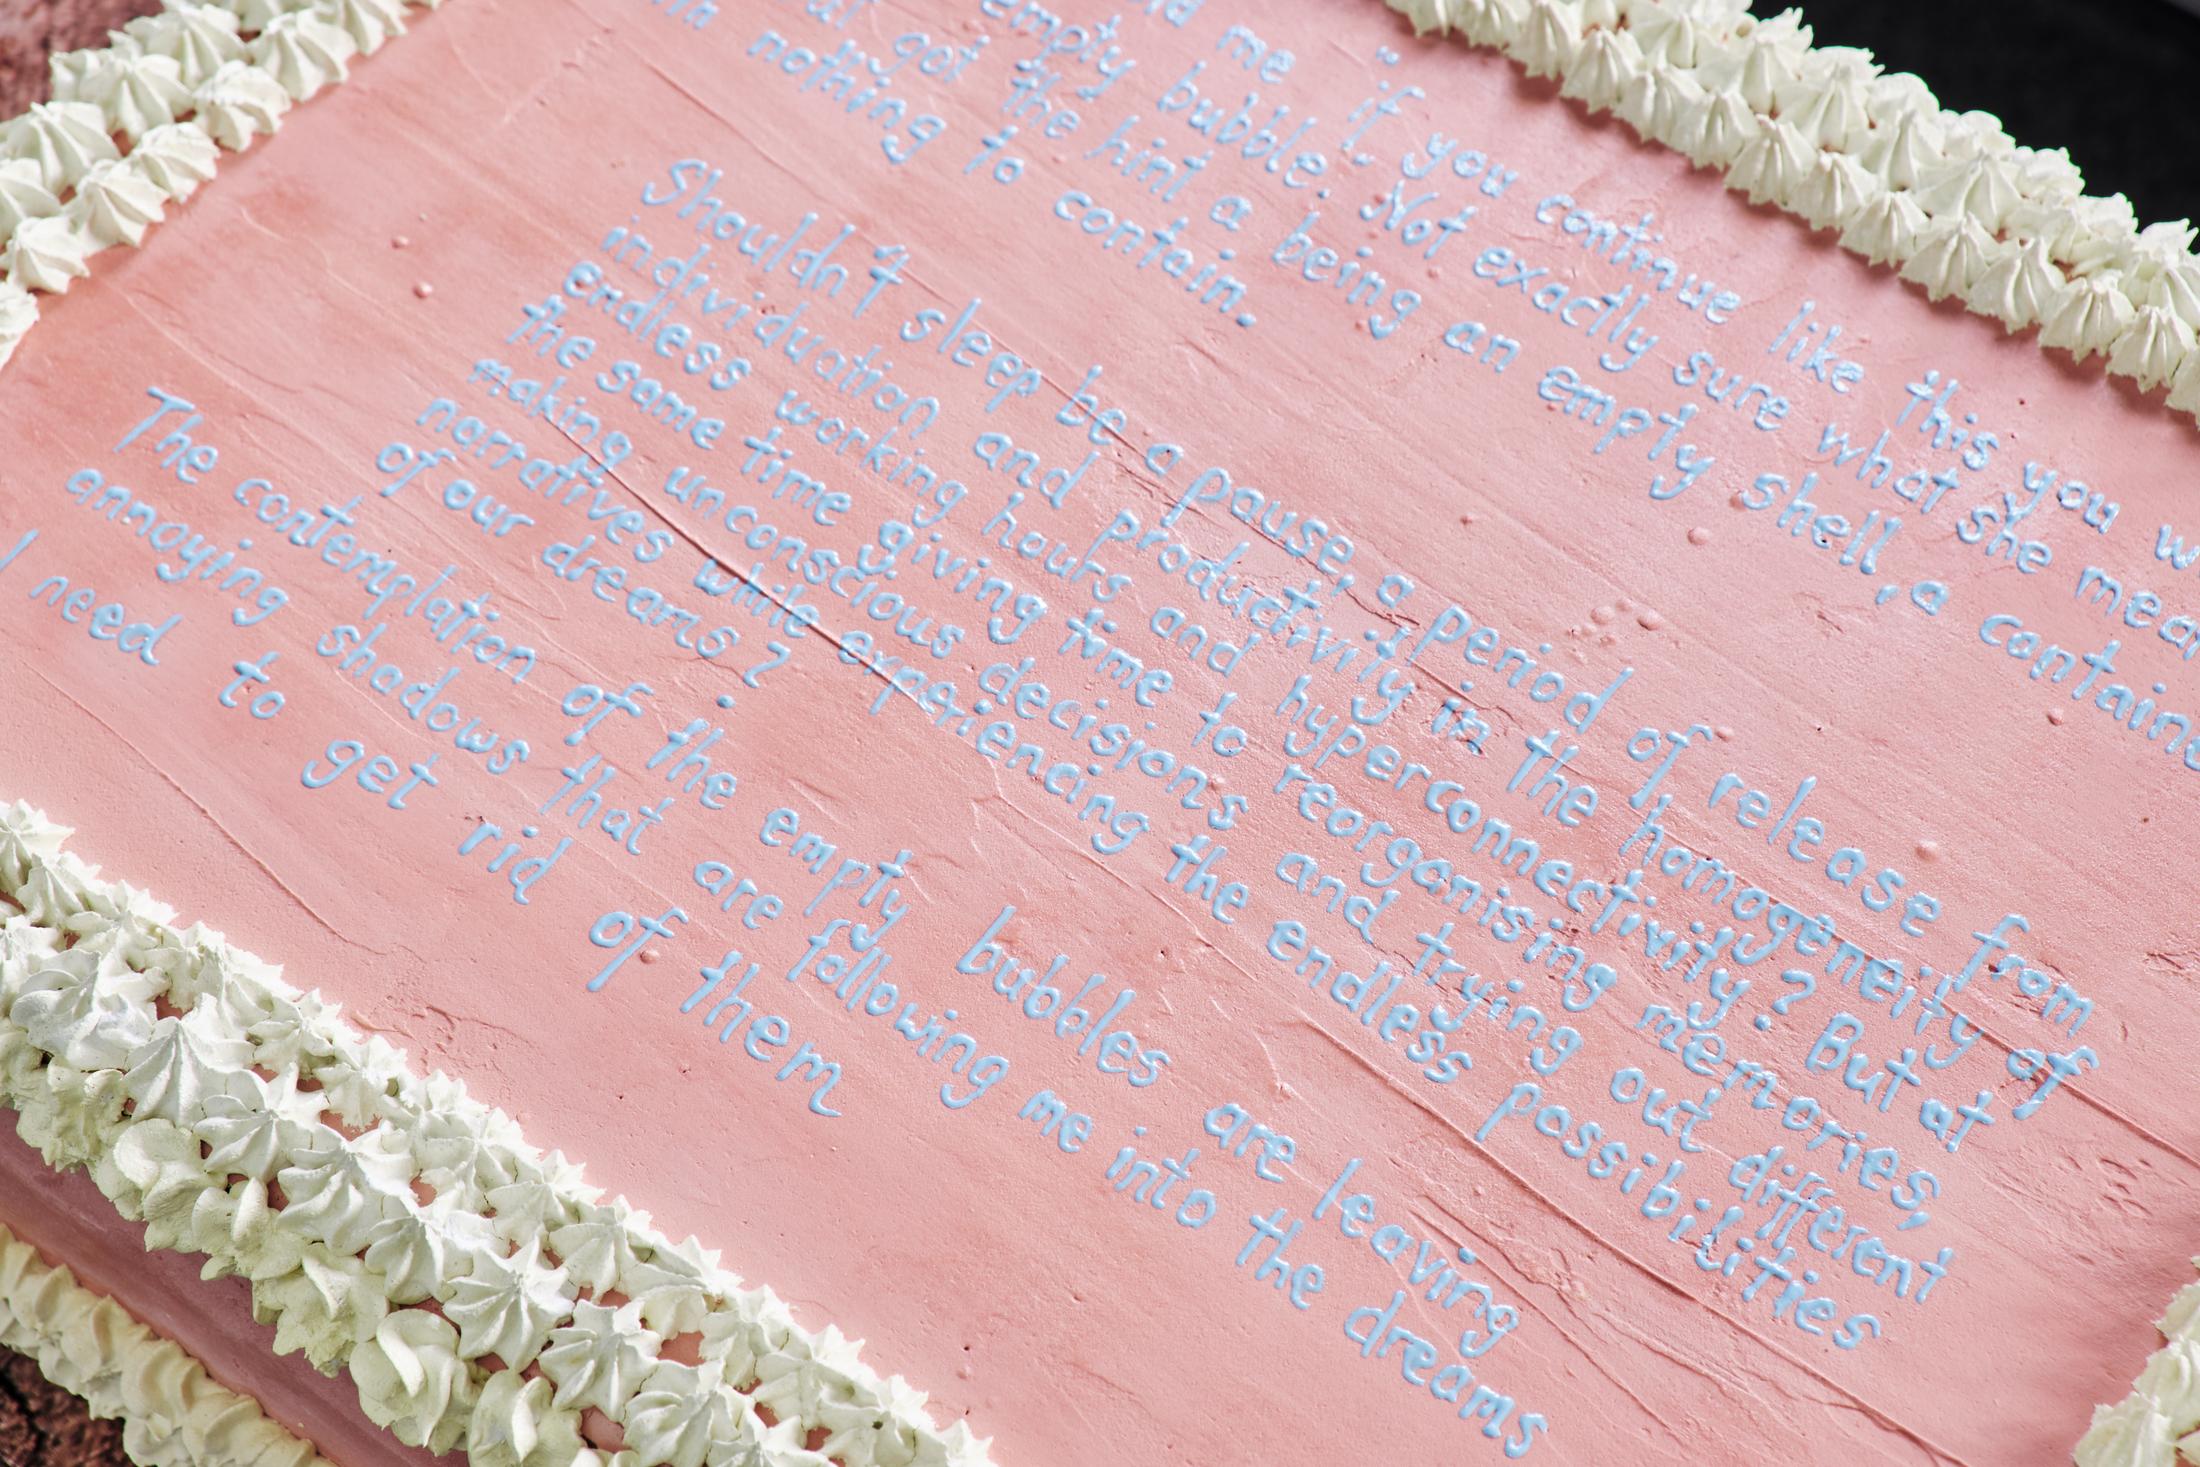 me " if you continue like this you
empty bubble. Not exactly sure what she
got the hint a being an empty shell, a
nothing to contain.
Shouldn't sleep be a pause, a period of release from
individuation and productivity in the homogeneity of
endless working hours and hyperconnectivity? But at
the same time giving time to reorganising memories,
making unconscious decisions and trying out different
narratives while experiencing the endless possibilities
of our dreams?
The contemplation of the empty bubbles are leaving
annoying shadows that are following me into the dreams
I need to get rid of them